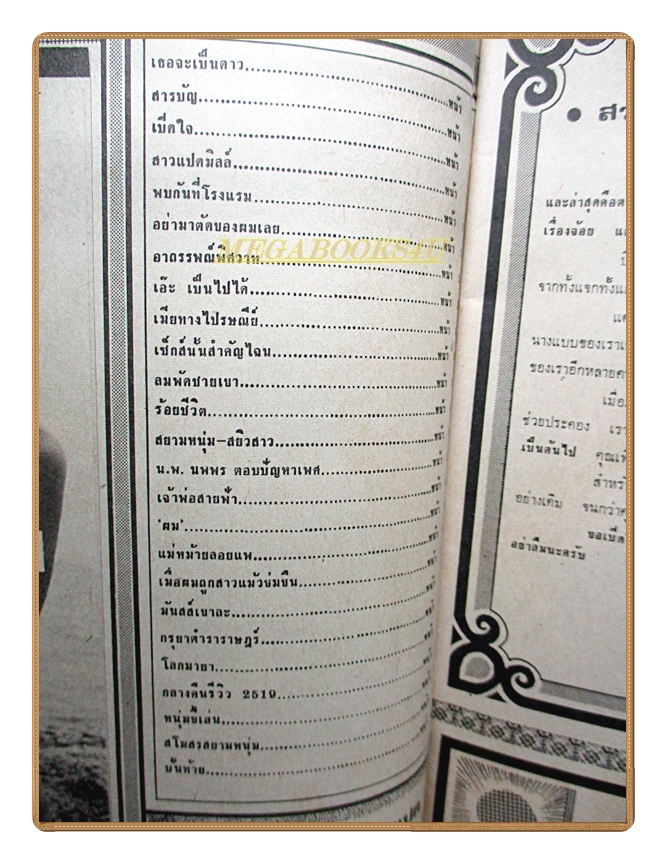 เธอจะเป็นดาว
สารบัญ....................หน้า
เปิดใจ....................หน้า
สาวแปดมิลล์....................หน้า
พบกันที่โรงแรม....................หน้า
อย่ามาตัดของผมเลย....................หน้า
MEGABOOKS4U
อาถรรพณ์พิศวาท....................หน้า
เอ๊ะ เป็นไปได้....................หน้า
เมียทางไปรษณีย์....................หน้า
เซ็กส์นั้นสำคัญไฉน....................หน้า
ลมพัดชายเขา....................หน้า
ร้อยชีวิต....................หน้า
สยามหนุ่ม–สยิวสาว....................หน้า
น.พ. นพพร ตอบปัญหาเพศ....................หน้า
เจ้าพ่อสายฟ้า....................หน้า
'ผม'....................หน้า
แม่หม้ายลอยแพ....................หน้า
เมื่อผมถูกสาวแม้วข่มขืน....................หน้า
มันส์ส์เขาละ....................หน้า
กรุยาตำราราษฎร์....................หน้า
โลกมายา....................หน้า
กลางคืนรีวิว 2519....................หน้า
หนุ่มขี้เล่น....................หน้า
สโมสรสยามหนุ่ม....................
บั้นท้าย....................
• สว
และล่าสุดคือต
เรื่องจ้อย
จากทั้งแจกทั้งแ
แต่
นางแบบของเราเ
ของเราอีกหลายค
เมื่อ
ช่วยประคอง เรา
เป็นต้นไป คุณเพ
สำหรั
อย่างเดิม จนกว่าคุ
ขอเปิด
อย่าลืมนะครับ